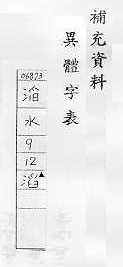 補充資料
異體字表
06873
㴙
水
9
12
滔▲